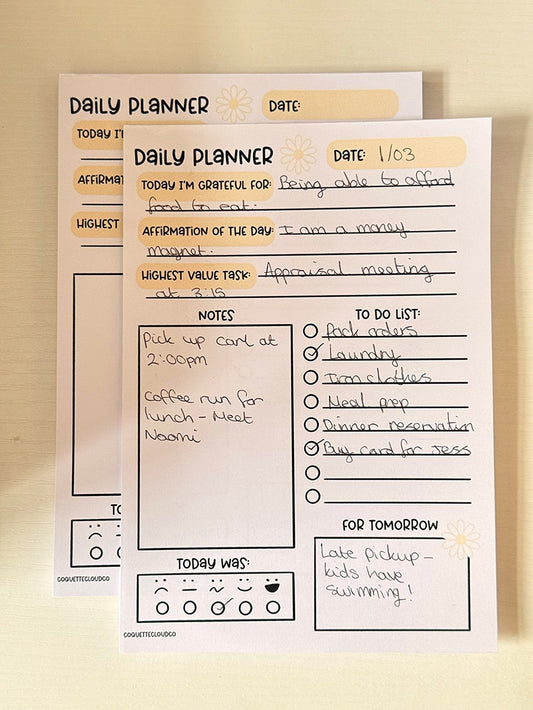 DAILY PLANNER
DATE:
TODAY I'
AFFIRMA
HIGHEST
TO
COQUETTECLOUDCO
DAILY PLANNER
DATE: 1/03
TODAY I'M GRATEFUL FOR: Being able to afford
food to eat.
AFFIRMATION OF THE DAY: I am a money
magnet.
HIGHEST VALUE TASK: Appraisal meeting
at 3:15
NOTES
Pick up card at
2:00pm
Coffee run for
lunch - Meet
Naomi
TO DO LIST:
Pack orders
Laundry
Iron clothes
Meal prep
Dinner reservation
Buy card for Jess
FOR TOMORROW
Late pickup -
kids have
swimming!
TODAY WAS:
COQUETTECLOUDCO